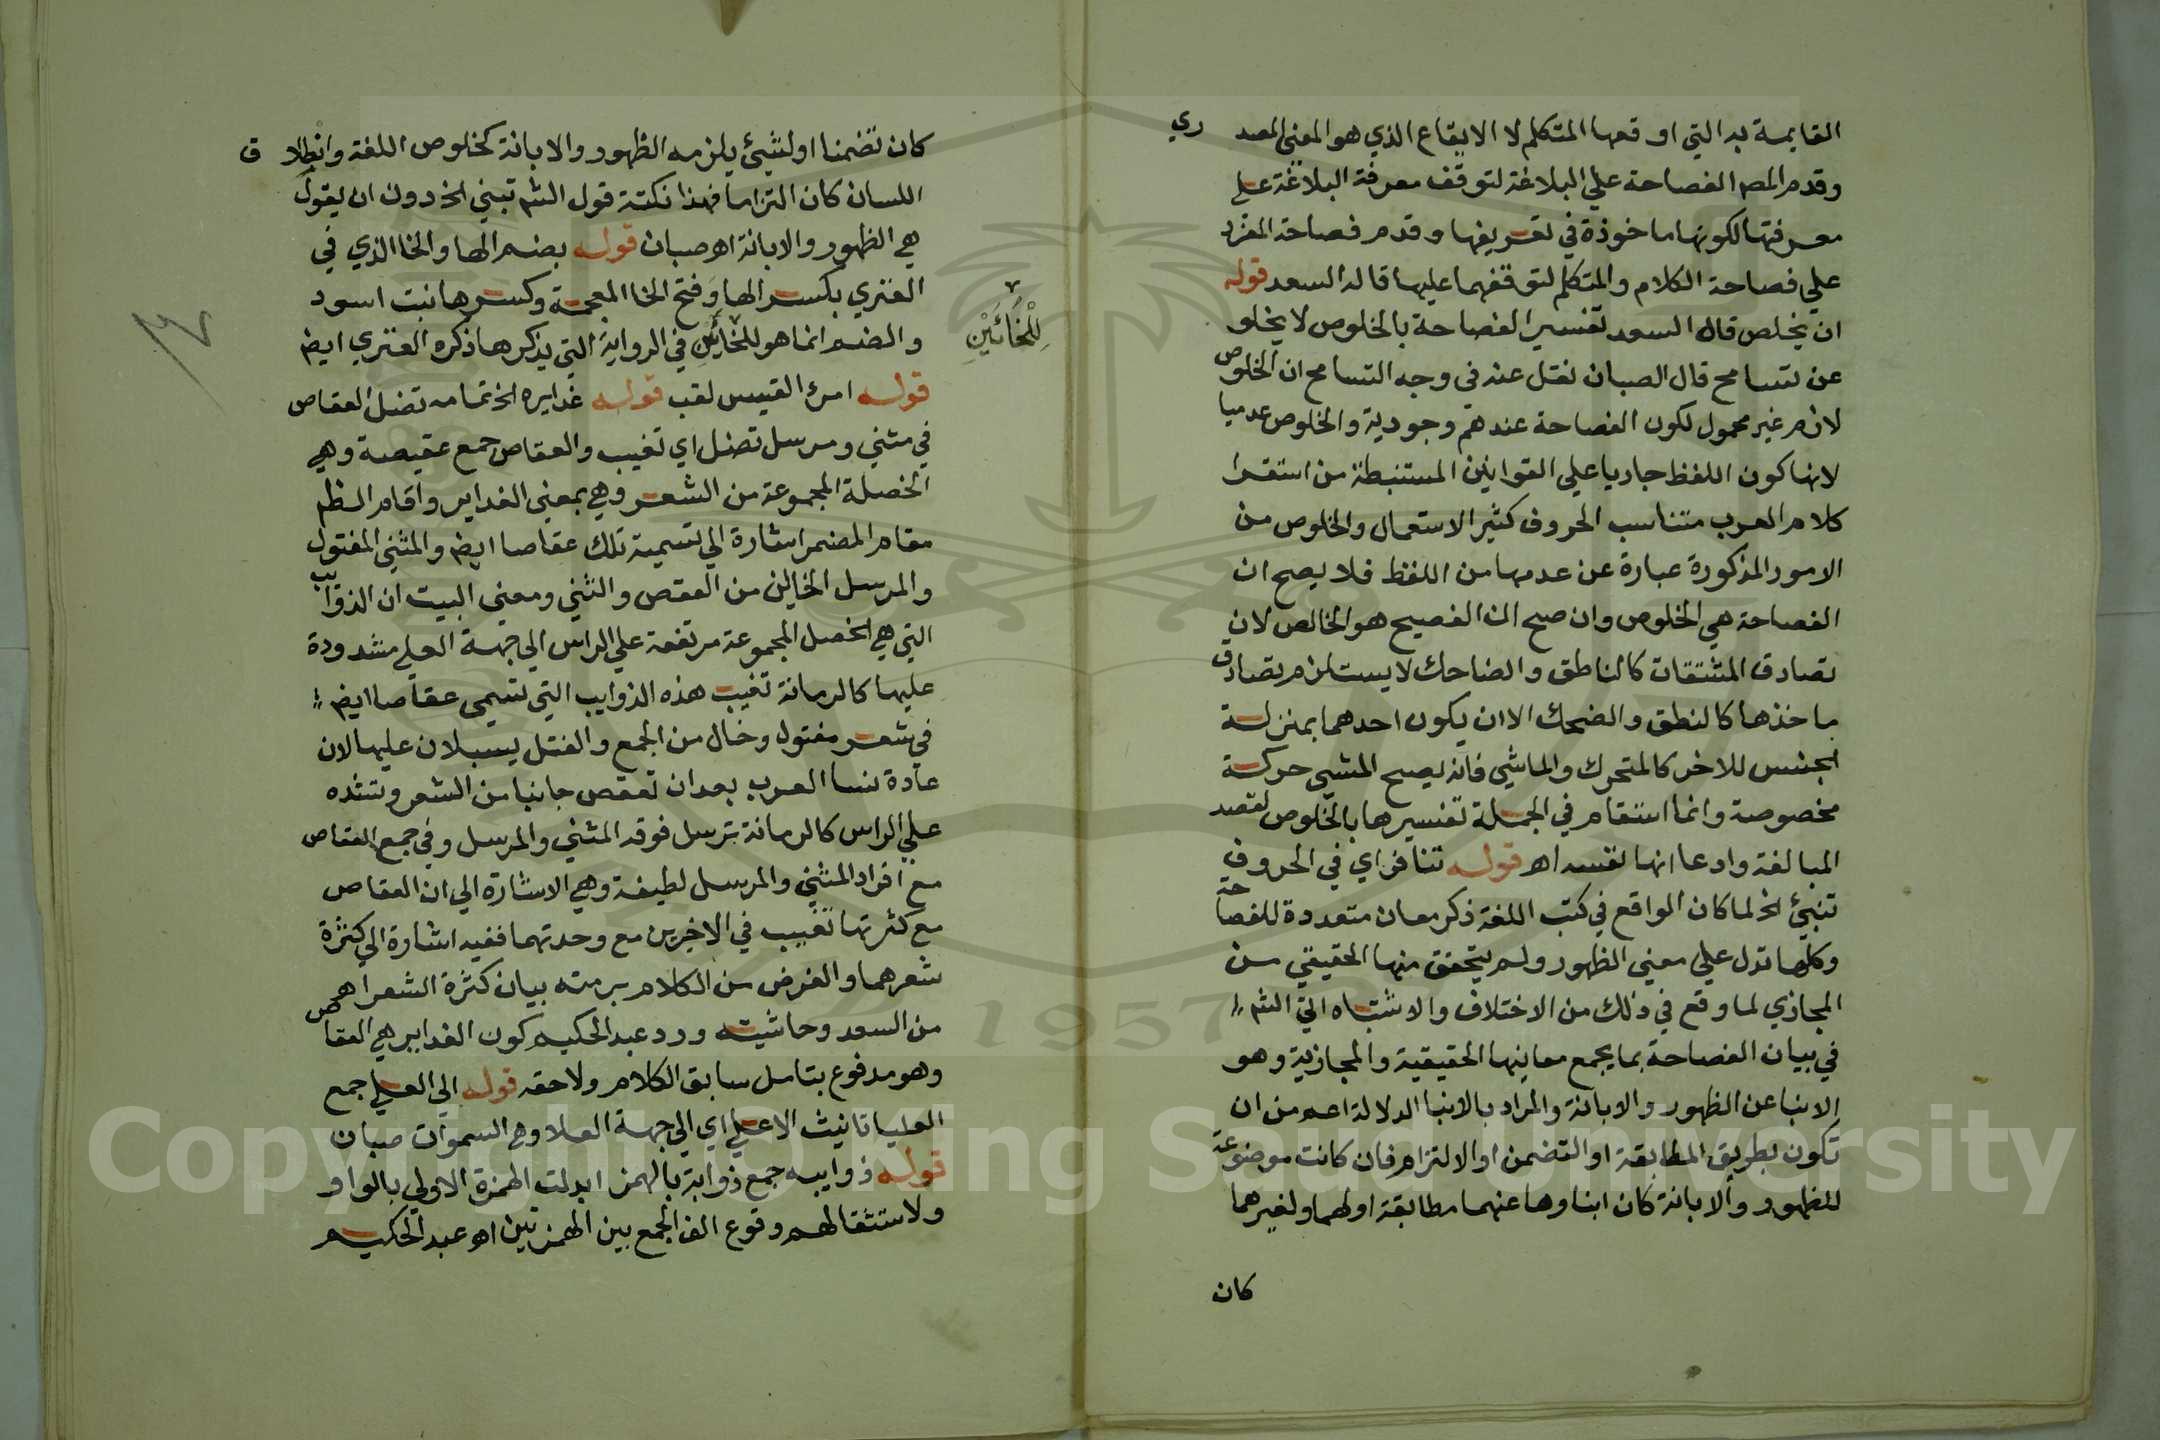 القايمة به التي اوقعها المتكلم لا الايقاع الذي هو المعني المصد ري
وقدم المص الفصاحة علي البلاغة لتوقف معرفة البلاغة علي
معرفتها لكونها ماخوذة في تعريفها وقدم فصاحة المفرد
علي فصاحة الكلام والمتكلم لتوقفهما عليها قاله السعد قوله
ان يخلص قال السعد تفسير الفصاحة بالخلوص لا يخلو
عن تسامح قال الصبان نقل عنه في وجه التسامح ان الخلوص
لازم غير محمول لكون الفصاحة عندهم وجودية والخلوص عدميا
لانها كون اللفظ جاريا علي القوانين المستنبطة من استقرا
كلام العرب متناسب الحروف كثير الاستعمال والخلوص من
الامور المذكورة عبارة عن عدمها من اللفظ فلا يصح ان
الفصاحة هي الخلوص وان صح ان الفصيح هو الخالص لان
تصادق المشتقات كالناطق والضاحك لا يستلزم تصادق
ماخذها كالنطق والضحك الا ان يكون احدهما بمنزلة
الجنس للاخر كالمتحرك والماشي فانه يصح المشي حركة
مخصوصة وانما استقام في الجملة تفسيرها بالخلوص لقصد
المبالغة وادعا انها نفسه اه قوله تنافر اي في الحروف
تنبئ الخ لما كان الواقع في كتب اللغة ذكر معان متعددة للفصاحة
وكلها تدل علي معني الظهور ولم يتحقق منها الحقيقي من
المجازي لما وقع في ذلك من الاختلاف والاشتباه اتي الشم
في بيان الفصاحة بما يجمع معانيها الحقيقية والمجازية وهو
الانبا عن الظهور والابانة والمراد بالانبا الدلالة اعم من ان
تكون بطريق المطابقة او التضمن او الالتزام فان كانت موضوعة
للظهور والابانة كان انباوها عنهما مطابقة او لهما ولغيرهما
كان
كان تضمنا او لشيئ يلزمه الظهور والابانة كخلوص اللغة وانطلا ق
اللسان كان التزاما فهذا نكتة قول الشم تنبئ الخ دون ان يقول
هي الظهور والابانة اه صبان قوله بضم الها والخا الذي في
العنزي بكسر الها وفتح الخا المعجمة وكسرها نبت اسود
والضم انما هو للخائين في الرواية التي يذكرها ذكره العنزي ايض
لِلْخُائَيْنِ
قوله امرئ القيس لقب قوله غدايره الخ تمامه تضل العقاص
في مثني ومرسل تضل اي تغيب والعقاص جمع عقيصة وهي
الخصلة المجموعة من الشعر وهي بمعني الغداير واقام الظم
مقام المضمر اشارة الي تسمية تلك عقاصا ايض والمثني المفتول
والمرسل الخالي من العقص والثني ومعني البيت ان الذوايب
التي هي الخصل المجموعة مرتفعة علي الراس الي جهة العلي مشدودة
عليها كالرمانة تغيب هذه الذوايب التي تسمي عقاصا ايض
في شعر مفتول وخال من الجمع والفتل يسبلان عليها لان
عادة نسا العرب بعد ان تعقص جانبا من الشعر وتشده
علي الراس كالرمانة ترسل فوقه المثني والمرسل وفي جمع العقاص
مع افراد المثني والمرسل لطيفة وهي الاشارة الي ان العقاص
مع كثرتها تغيب في الاخيرين مع وحدتهما ففيه اشارة الي كثرة
شعرهما والغرض من الكلام برمته بيان كثرة الشعر اه
من السعد وحاشيته ورد عبد الحكيم كون الغداير هي العقاص
وهو مدفوع بتامل سابق الكلام ولاحقه قوله الي العلي جمع
العليا تانيث الاعلي اي الي جهة العلا وهي السموات صبان
قوله ذوايبه جمع ذوابة بالهمز ابدلت الهمزة الاولي بالواو
ولاستثقالهم وقوع الف الجمع بين الهمزتين اه عبد الحكيم
1957
Copyright © King Saud University